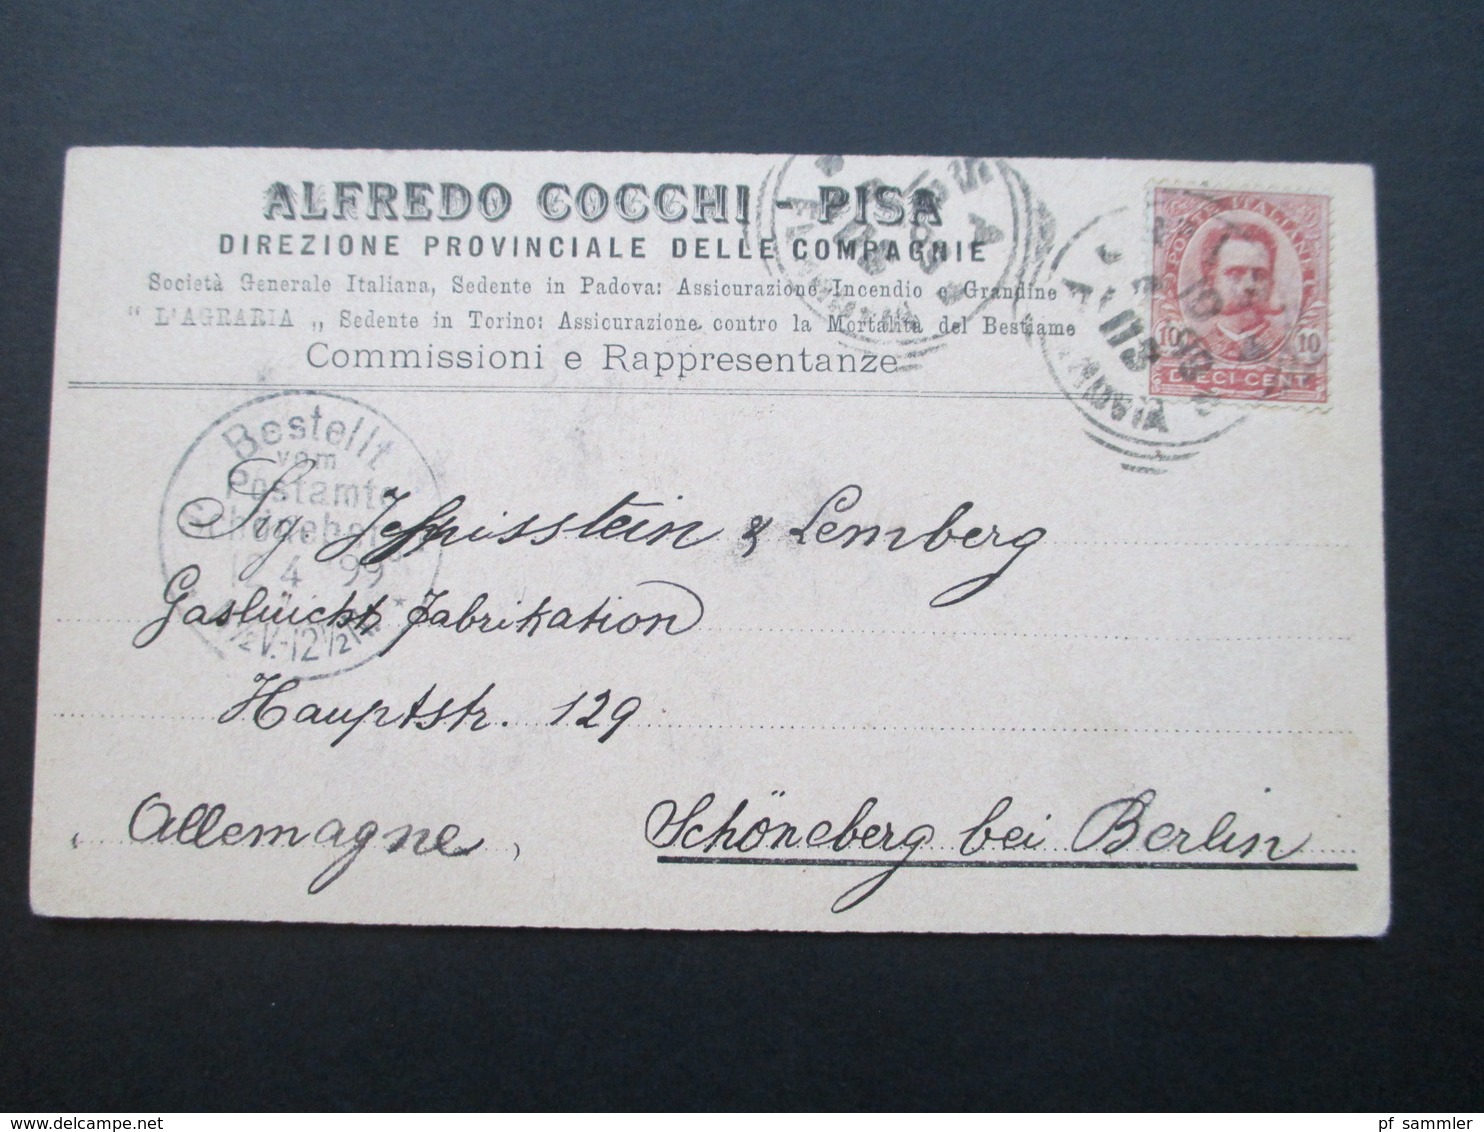 ALFREDO COCCHI - PISA
DIREZIONE PROVINCIALE DELLE COMPAGNIE
Società Generale Italiana, Sedente in Padova: Assicurazione Incendio e Grandine
" L'AGRARIA „ Sedente in Torino: Assicurazione contro la Mortalità del Bestiame
Commissioni e Rappresentanze
POSTE ITALIANE
10 10
DIECI CENT.
Bestellt
vom
Postamte
4 99
½V.-12½N.
Sig. & Lemberg
Fabrikation
Hauptstr. 129
Allemagne, Schöneberg bei Berlin
pf_sammler